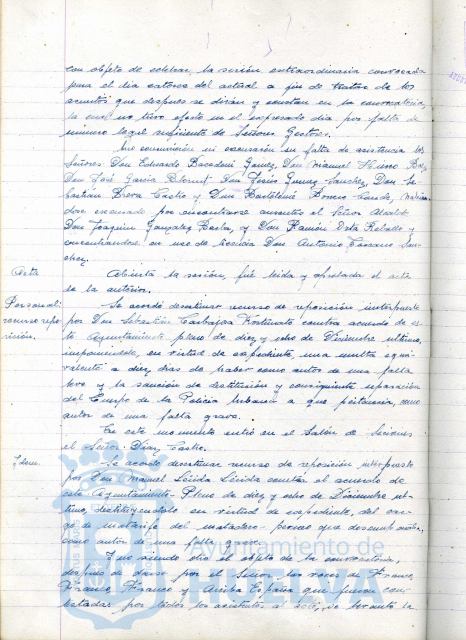 con objeto de celebrar la sesión extraordinaria convocada
para el dia catorce del actual a fin de tratar de los
asuntos que despues se dirán y constan en la convocatoria,
la cual no tuvo efecto en el expresado dia por falta de
número legal suficiente de Señores Gestores.
Sin comunicar ni excusarse su falta de asistencia los
Señores Don Eduardo Bacedoni Gomez, Don Manuel
Don José Garcia Don Jesús Gomez Sanchez, Don Se-
bastián Castro y Don Bartolomé Romero Conde, habién-
dose excusado por encontrarse ausentes el Señor Alcalde
Don Joaquin Gonzalez y Don Ramón Rebollo y
encontrandose en uso de licencia Don Antonio San-
chez.
Acta
Abierta la sesión, fué leida y aprobada el acta
de la anterior.
Personal:
recurso repo-
sición.
Se acordó desestimar recurso de reposición interpuesto
por Don Sebastián Carbajosa contra acuerdo de es-
te Ayuntamiento pleno de diez y ocho de Diciembre último,
imponiendole, en virtud de expediente, una multa equi-
valente a diez dias de haber como autor de una falta
leve y la sanción de destitución y consiguiente separación
del Cuerpo de la Policia Urbana a que pertenecia, como
autor de una falta grave.
En este momento entró en el Salón de Sesiones
el Señor Diaz Castro.
Idem.
Se acordó desestimar recurso de reposición interpuesto
por Don Manuel Lérida Lérida contra el acuerdo de
este Ayuntamiento Pleno de diez y ocho de Diciembre úl-
timo, destituyendolo en virtud de expediente, del car-
go de matarife del matadero que desempeñaba,
como autor de una falta grave.
Y no siendo otro el objeto de la convocatoria,
despues de darse por el Señor las voces de Franco,
Franco, Franco y Arriba España que fueron con-
testadas por todos los asistentes al acto, se levantó la
Ayuntamiento de
HUELVA